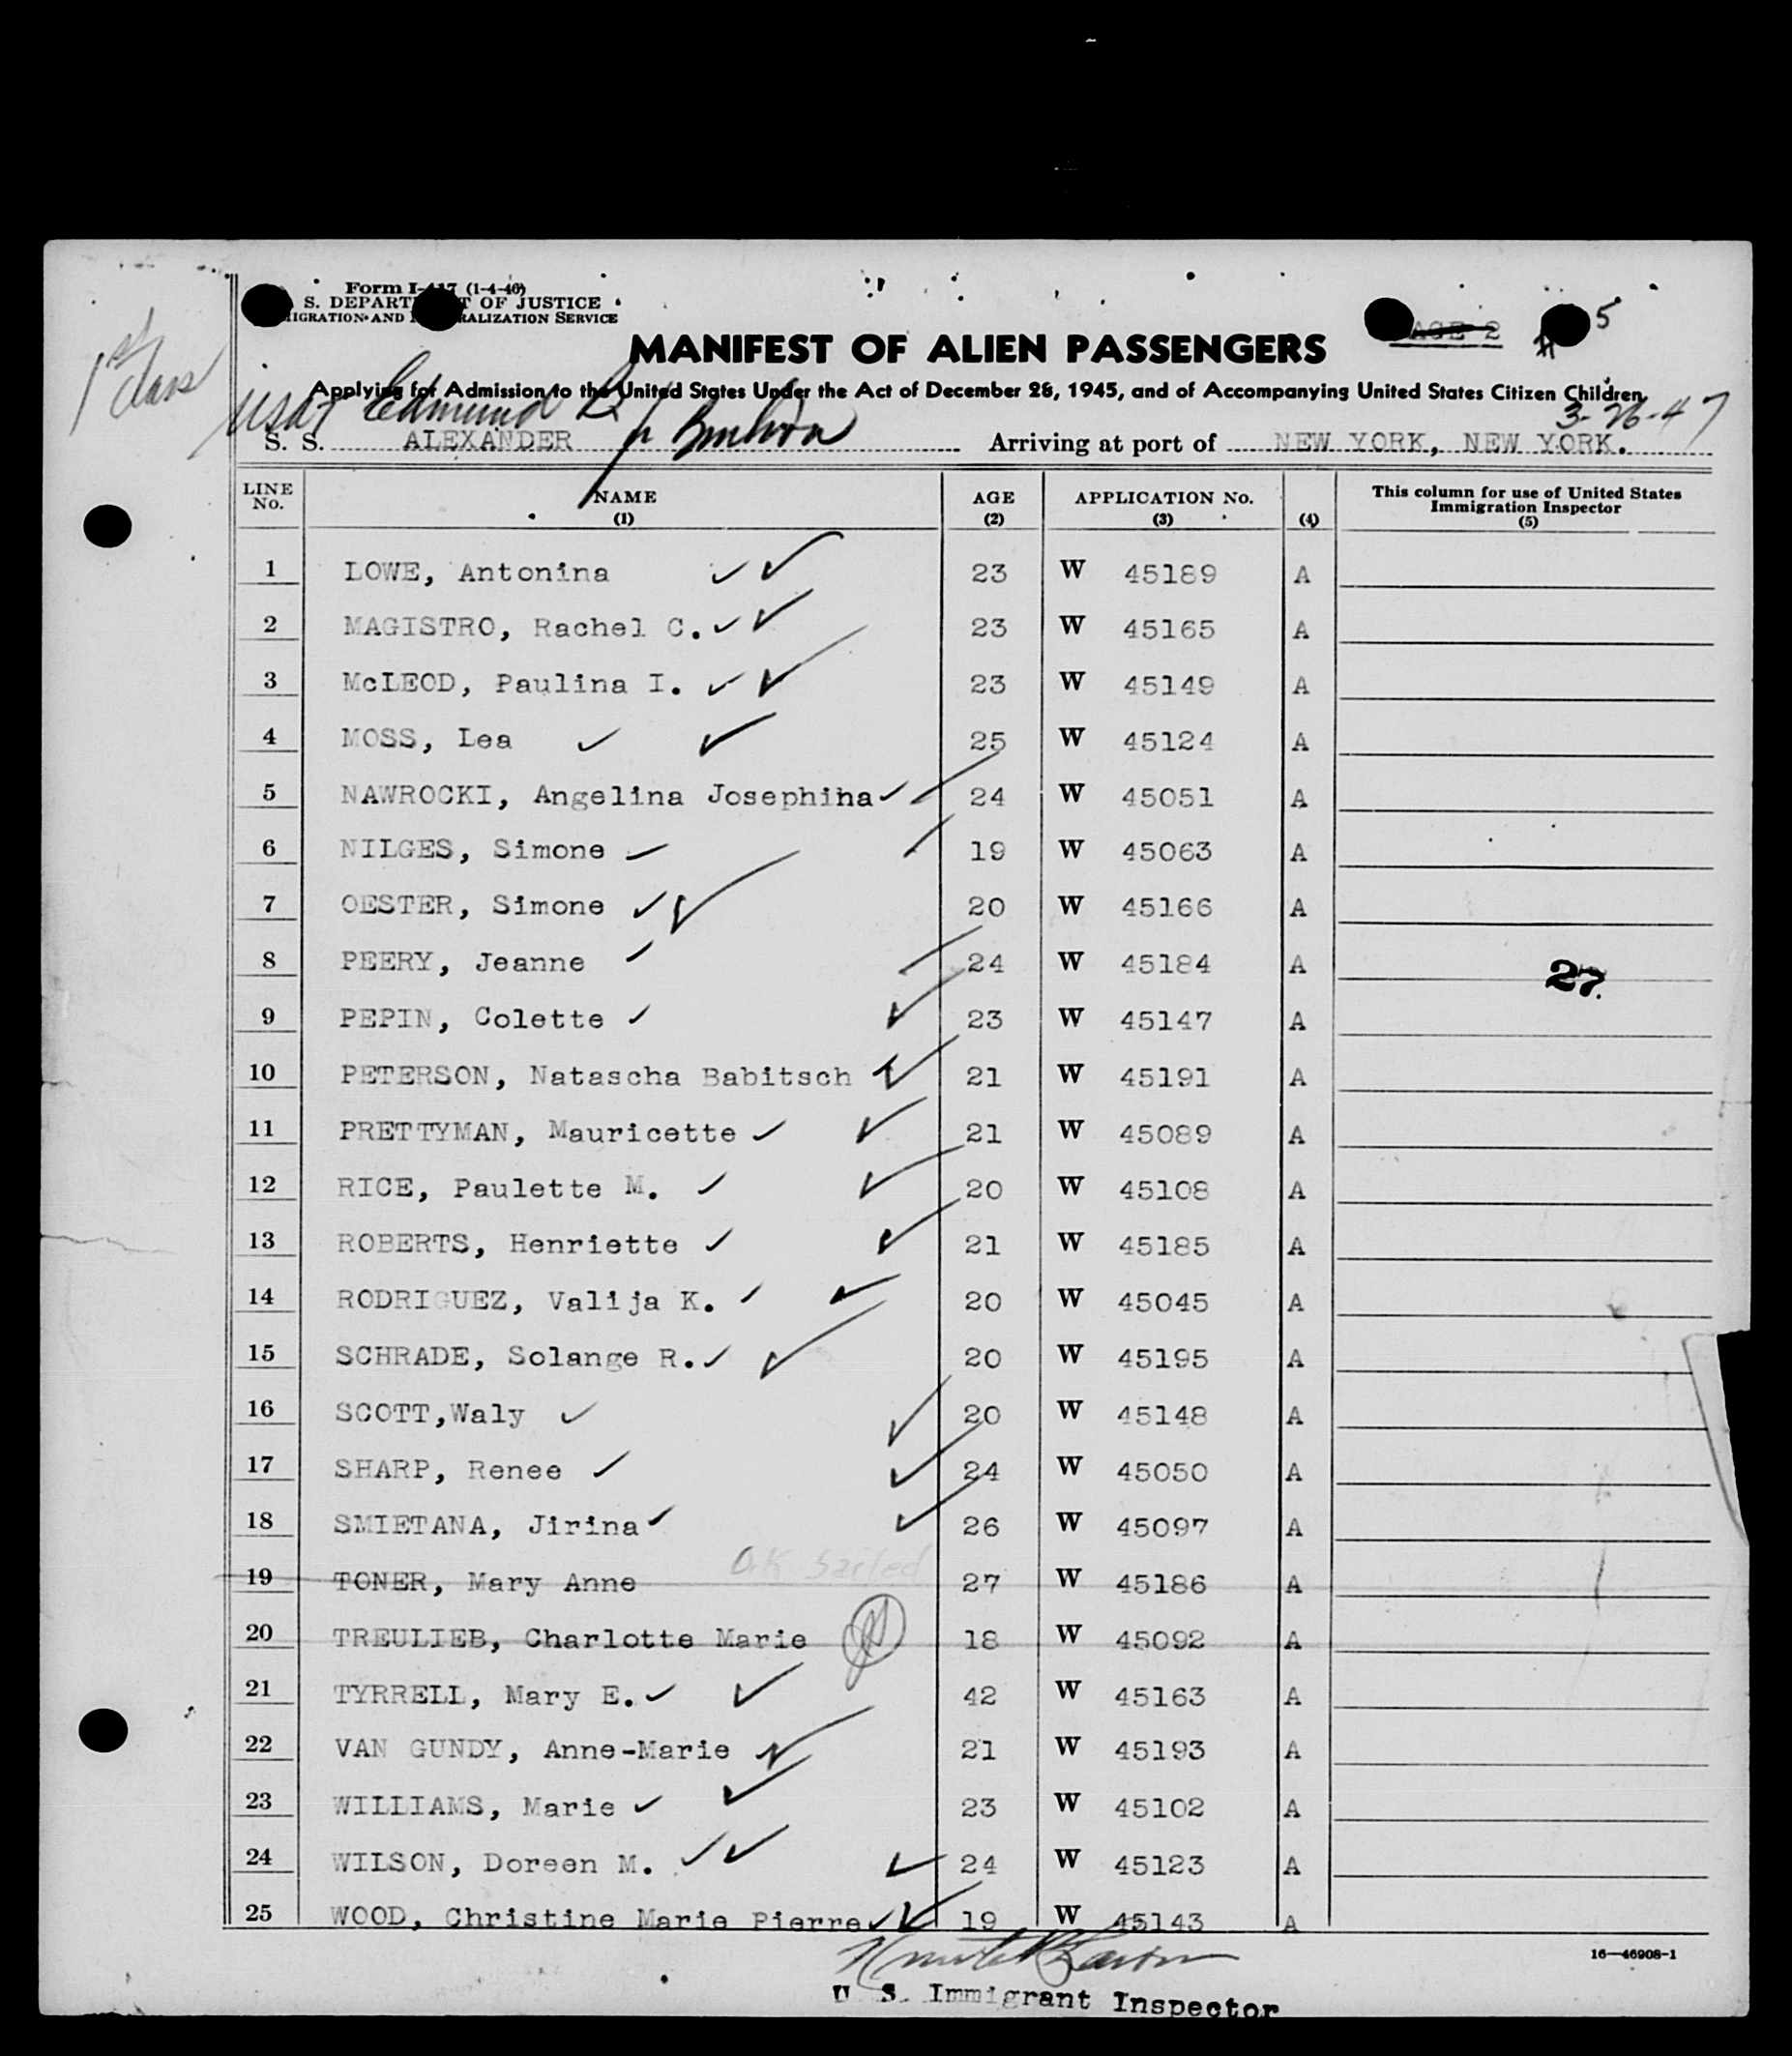 Form I-417 (1-4-46)
S. DEPARTMENT OF JUSTICE
IMMIGRATION AND NATURALIZATION SERVICE
1st Class
5
PAGE 2 #
MANIFEST OF ALIEN PASSENGERS
Applying for Admission to the United States Under the Act of December 28, 1945, and of Accompanying United States Citizen Children
USAT Edmund B
3-26-47
S. S. ALEXANDER Arriving at port of NEW YORK, NEW YORK.
LINE No. NAME (1) AGE (2) APPLICATION No. (3) (4) This column for use of United States Immigration Inspector (5)
1 LOWE, Antonina 23 W 45189 A
2 MAGISTRO, Rachel C. 23 W 45165 A
3 McLEOD, Paulina I. 23 W 45149 A
4 MOSS, Lea 25 W 45124 A
5 NAWROCKI, Angelina Josephina 24 W 45051 A
6 NILGES, Simone 19 W 45063 A
7 OESTER, Simone 20 W 45166 A
8 PEERY, Jeanne 24 W 45184 A 27.
9 PEPIN, Colette 23 W 45147 A
10 PETERSON, Natascha Babitsch 21 W 45191 A
11 PRETTYMAN, Mauricette 21 W 45089 A
12 RICE, Paulette M. 20 W 45108 A
13 ROBERTS, Henriette 21 W 45185 A
14 RODRIGUEZ, Valija K. 20 W 45045 A
15 SCHRADE, Solange R. 20 W 45195 A
16 SCOTT,Waly 20 W 45148 A
17 SHARP, Renee 24 W 45050 A
18 SMIETANA, Jirina 26 W 45097 A
OK Sailed
19 TONER, Mary Anne 27 W 45186 A
20 TREULIEB, Charlotte Marie 18 W 45092 A
21 TYRRELL, Mary E. 42 W 45163 A
22 VAN GUNDY, Anne-Marie 21 W 45193 A
23 WILLIAMS, Marie 23 W 45102 A
24 WILSON, Doreen M. 24 W 45123 A
25 WOOD, Christine Marie Pierre 19 W 45143 A
16—46908-1
U S. Immigrant Inspector